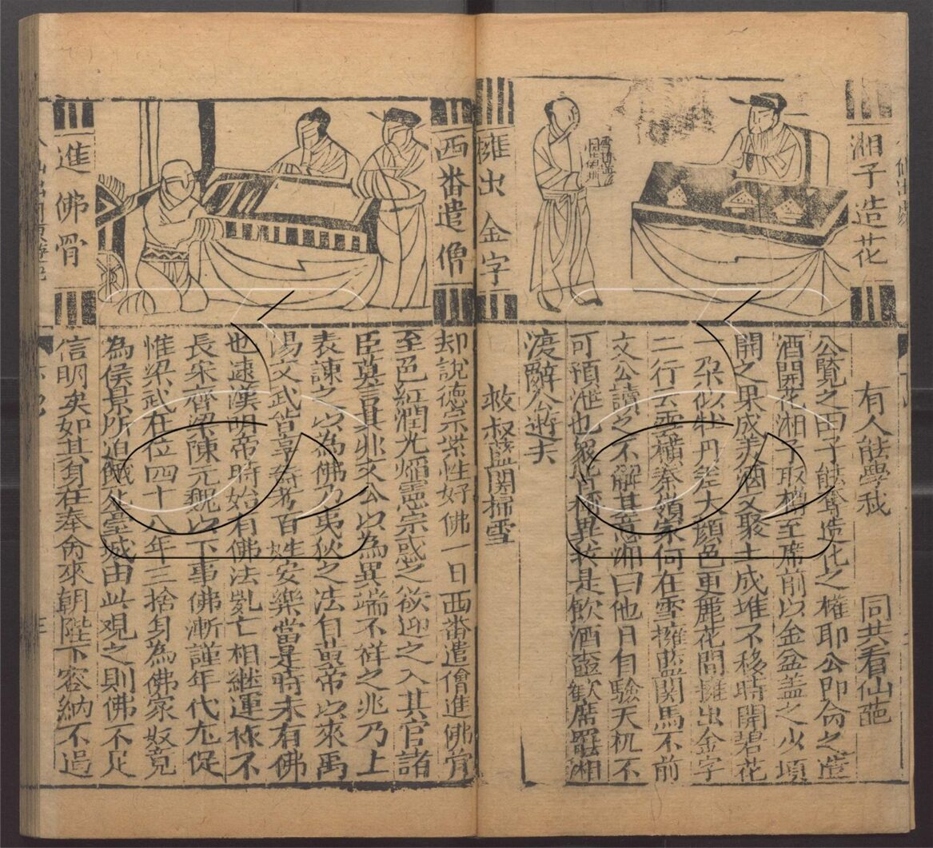 湘子造花
擁出金字
有人能學我　同共看仙葩
公覽之曰子能奪造化之權耶公即命之造
酒開花湘子取樽至席前以金盆盖之少頃
開之果成美酒又聚土成堆不移時開碧花
一朶似牡丹差大顏色更麗花間擁出金字
二行云雲橫秦嶺家何在雪擁藍関馬不前
文公讀之不解其意湘曰他日自驗天机不
可預泄也衆皆称異於是飲酒盡歡席罷湘
渡辭公遊去
救叔藍関掃雪
西番遣僧
進佛骨
却說德宗素性好佛一日西番遣僧進佛骨
至色紅潤光熖憲宗惑之欲迎之入其官諸
臣莫言其非文公以為異端不祥之兆乃上
表諫之以為佛乃夷狄之法自黄帝以來禹
湯文武皆享壽考百姓安樂當是時未有佛
也逮漢明帝時始有佛法乱亡相継運祚不
長宋齊梁陳元魏以下事佛漸謹年代尤促
惟梁武在位四十八年三捨身為佛家奴竟
為侯景所迫餓死臺城由此观之則佛不足
信明矣如其身在奉命來朝陛下容納不過